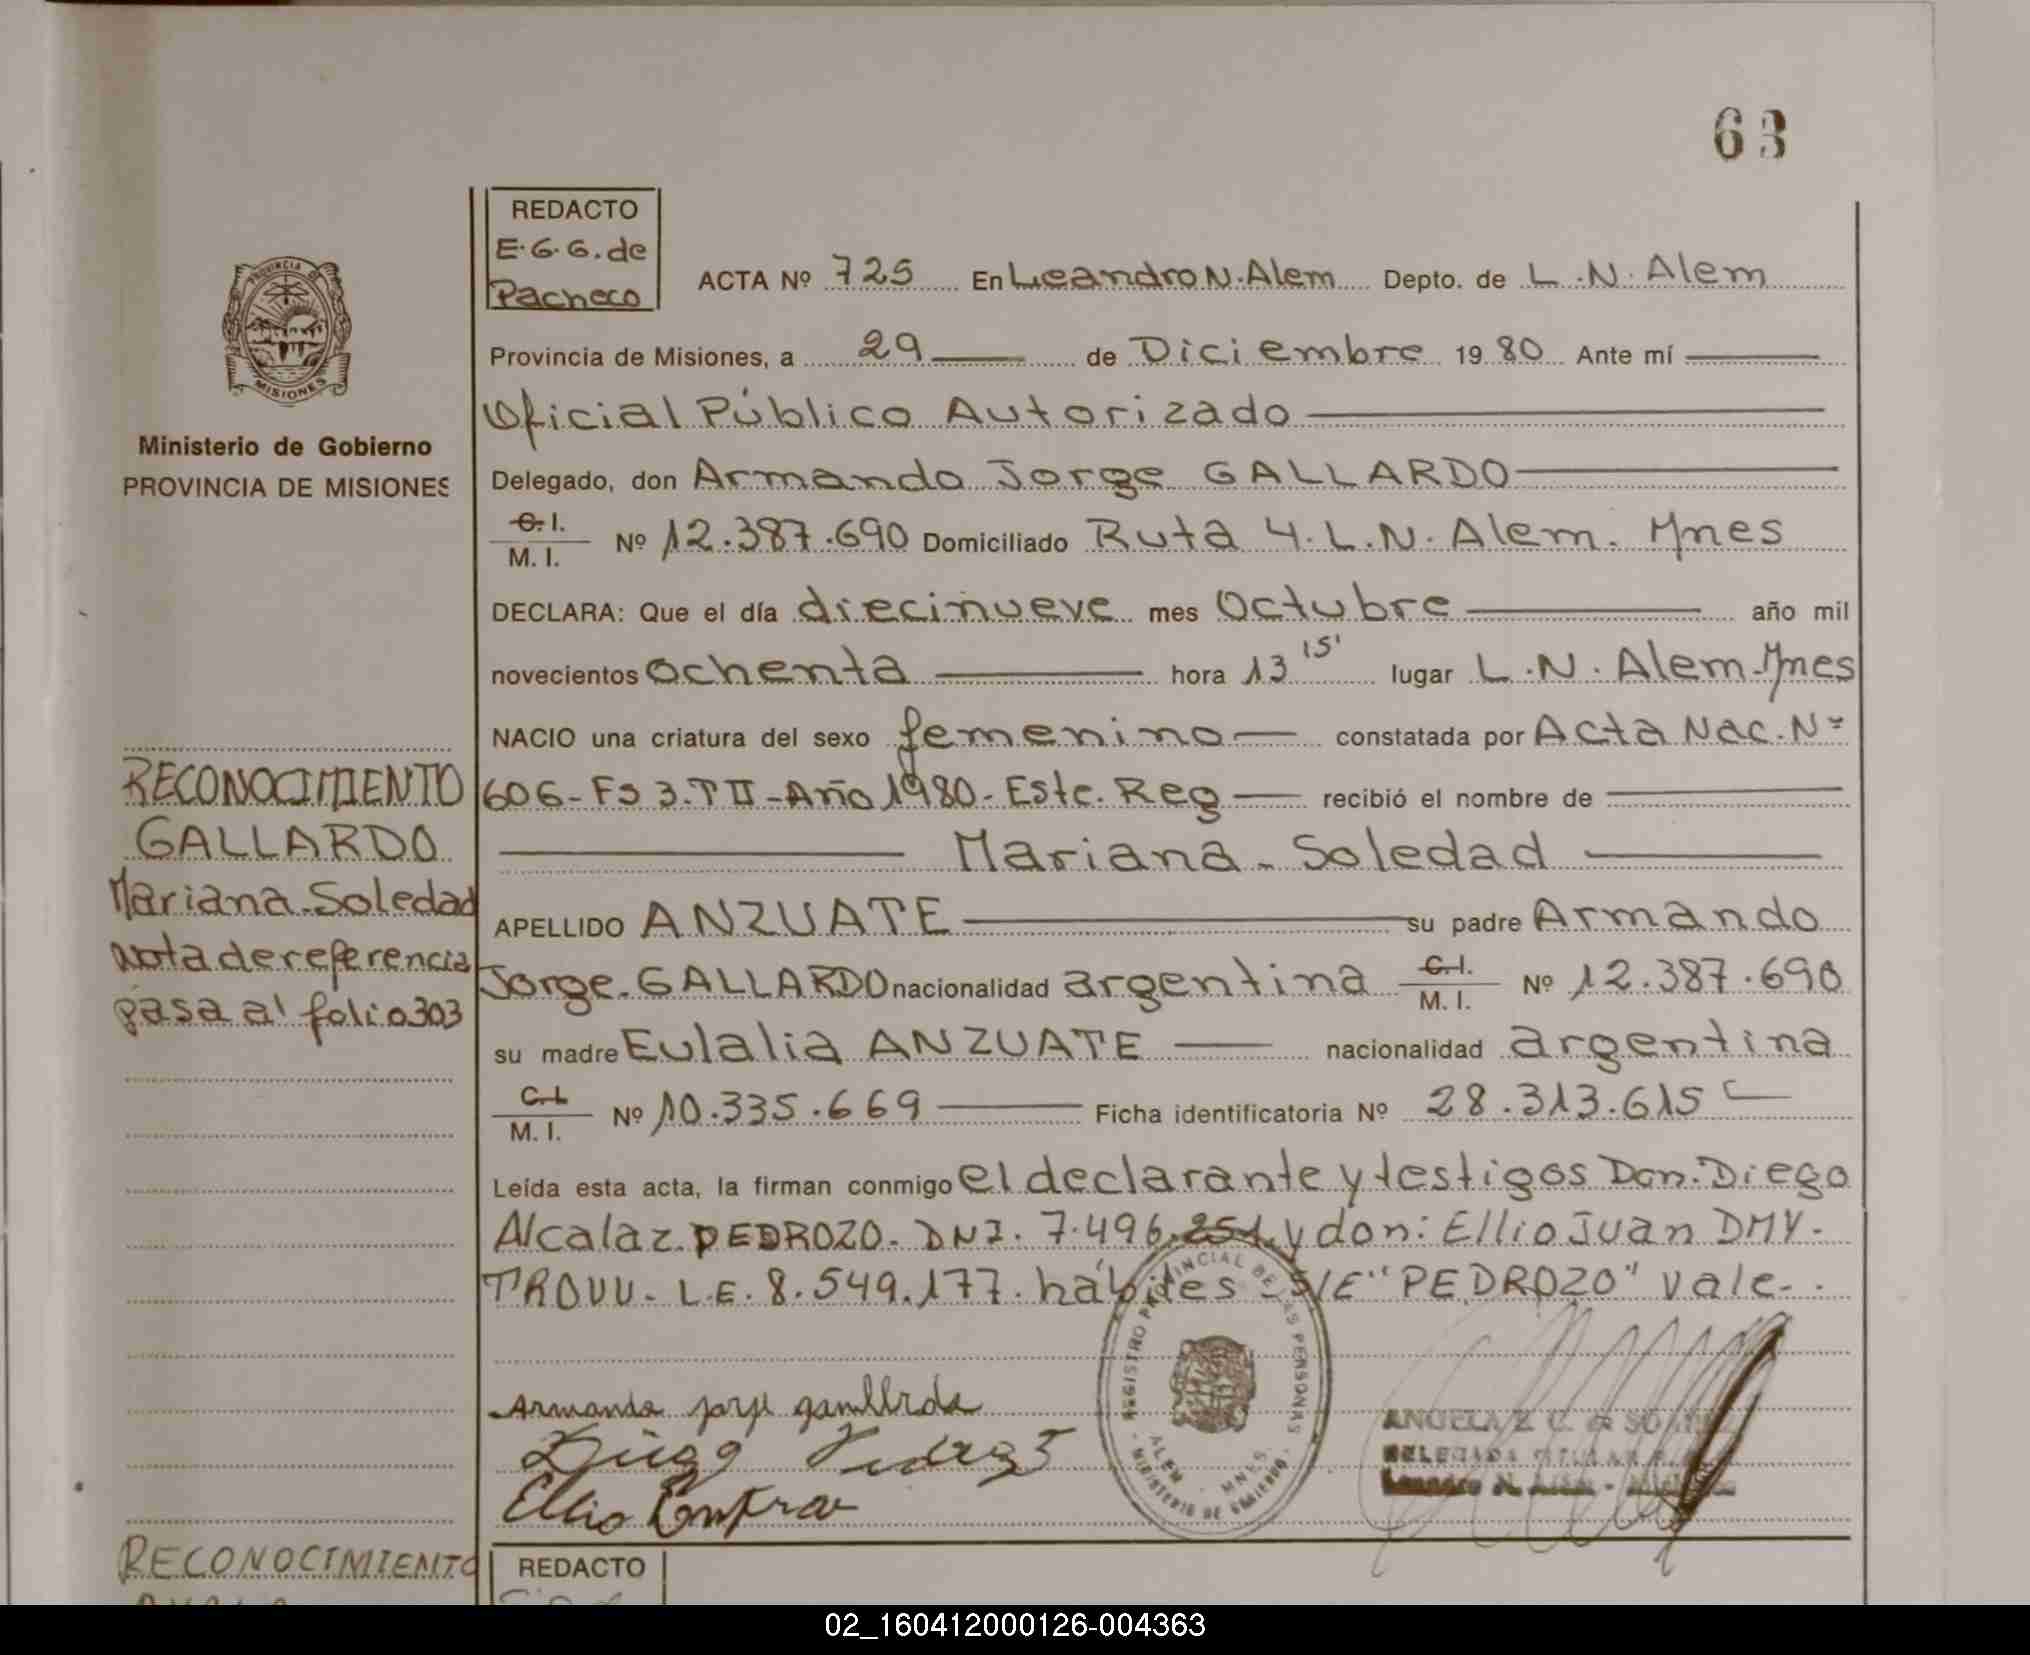 63
REDACTO
E.G.G. de
Pacheco
ACTA Nº 725 En Leandro N. Alem Depto. de L.N. Alem
Provincia de Misiones, a 29 de Diciembre 1980 Ante mí
Oficial Público Autorizado
Delegado, don Armando Jorge GALLARDO
C.I.
M.I. Nº 12.387.690 Domiciliado Ruta 4. L.N. Alem. Mnes
DECLARA: Que el día diecinueve mes Octubre año mil
novecientos ochenta hora 13 15' lugar L.N. Alem-Mnes
NACIO una criatura del sexo femenino constatada por Acta Nac. Nº
606-Fs 3.T II-Año 1980-Este. Reg recibió el nombre de
Mariana-Soledad
APELLIDO ANZUATE su padre Armando
Jorge-GALLARDO nacionalidad argentina C.I.
M.I. Nº 12.387.690
su madre Eulalia ANZUATE nacionalidad argentina
C.I.
M.I. Nº 10.335.669 Ficha identificatoria Nº 28.313.615
Leída esta acta, la firman conmigo el declarante y testigos Don. Diego
Alcalaz PEDROZO. DNI. 7.496.251. y don: Ellio Juan DMY-
TROVU. L.E. 8.549.177. hábiles - S/E "PEDROZO" vale-.
Armando jorge
Ellio
REGISTRO PROVINCIAL DE LAS PERSONAS
ALEM - MNES.
MINISTERIO DE GOBIERNO
ANGELA
DELEGADA TITULAR
Leandro N. Alem - Misiones
PROVINCIA DE
MISIONES
Ministerio de Gobierno
PROVINCIA DE MISIONES
RECONOCIMIENTO
GALLARDO
Mariana-Soledad
Nota de referencia
pasa al folio 303
RECONOCIMIENTO
REDACTO
02_160412000126-004363